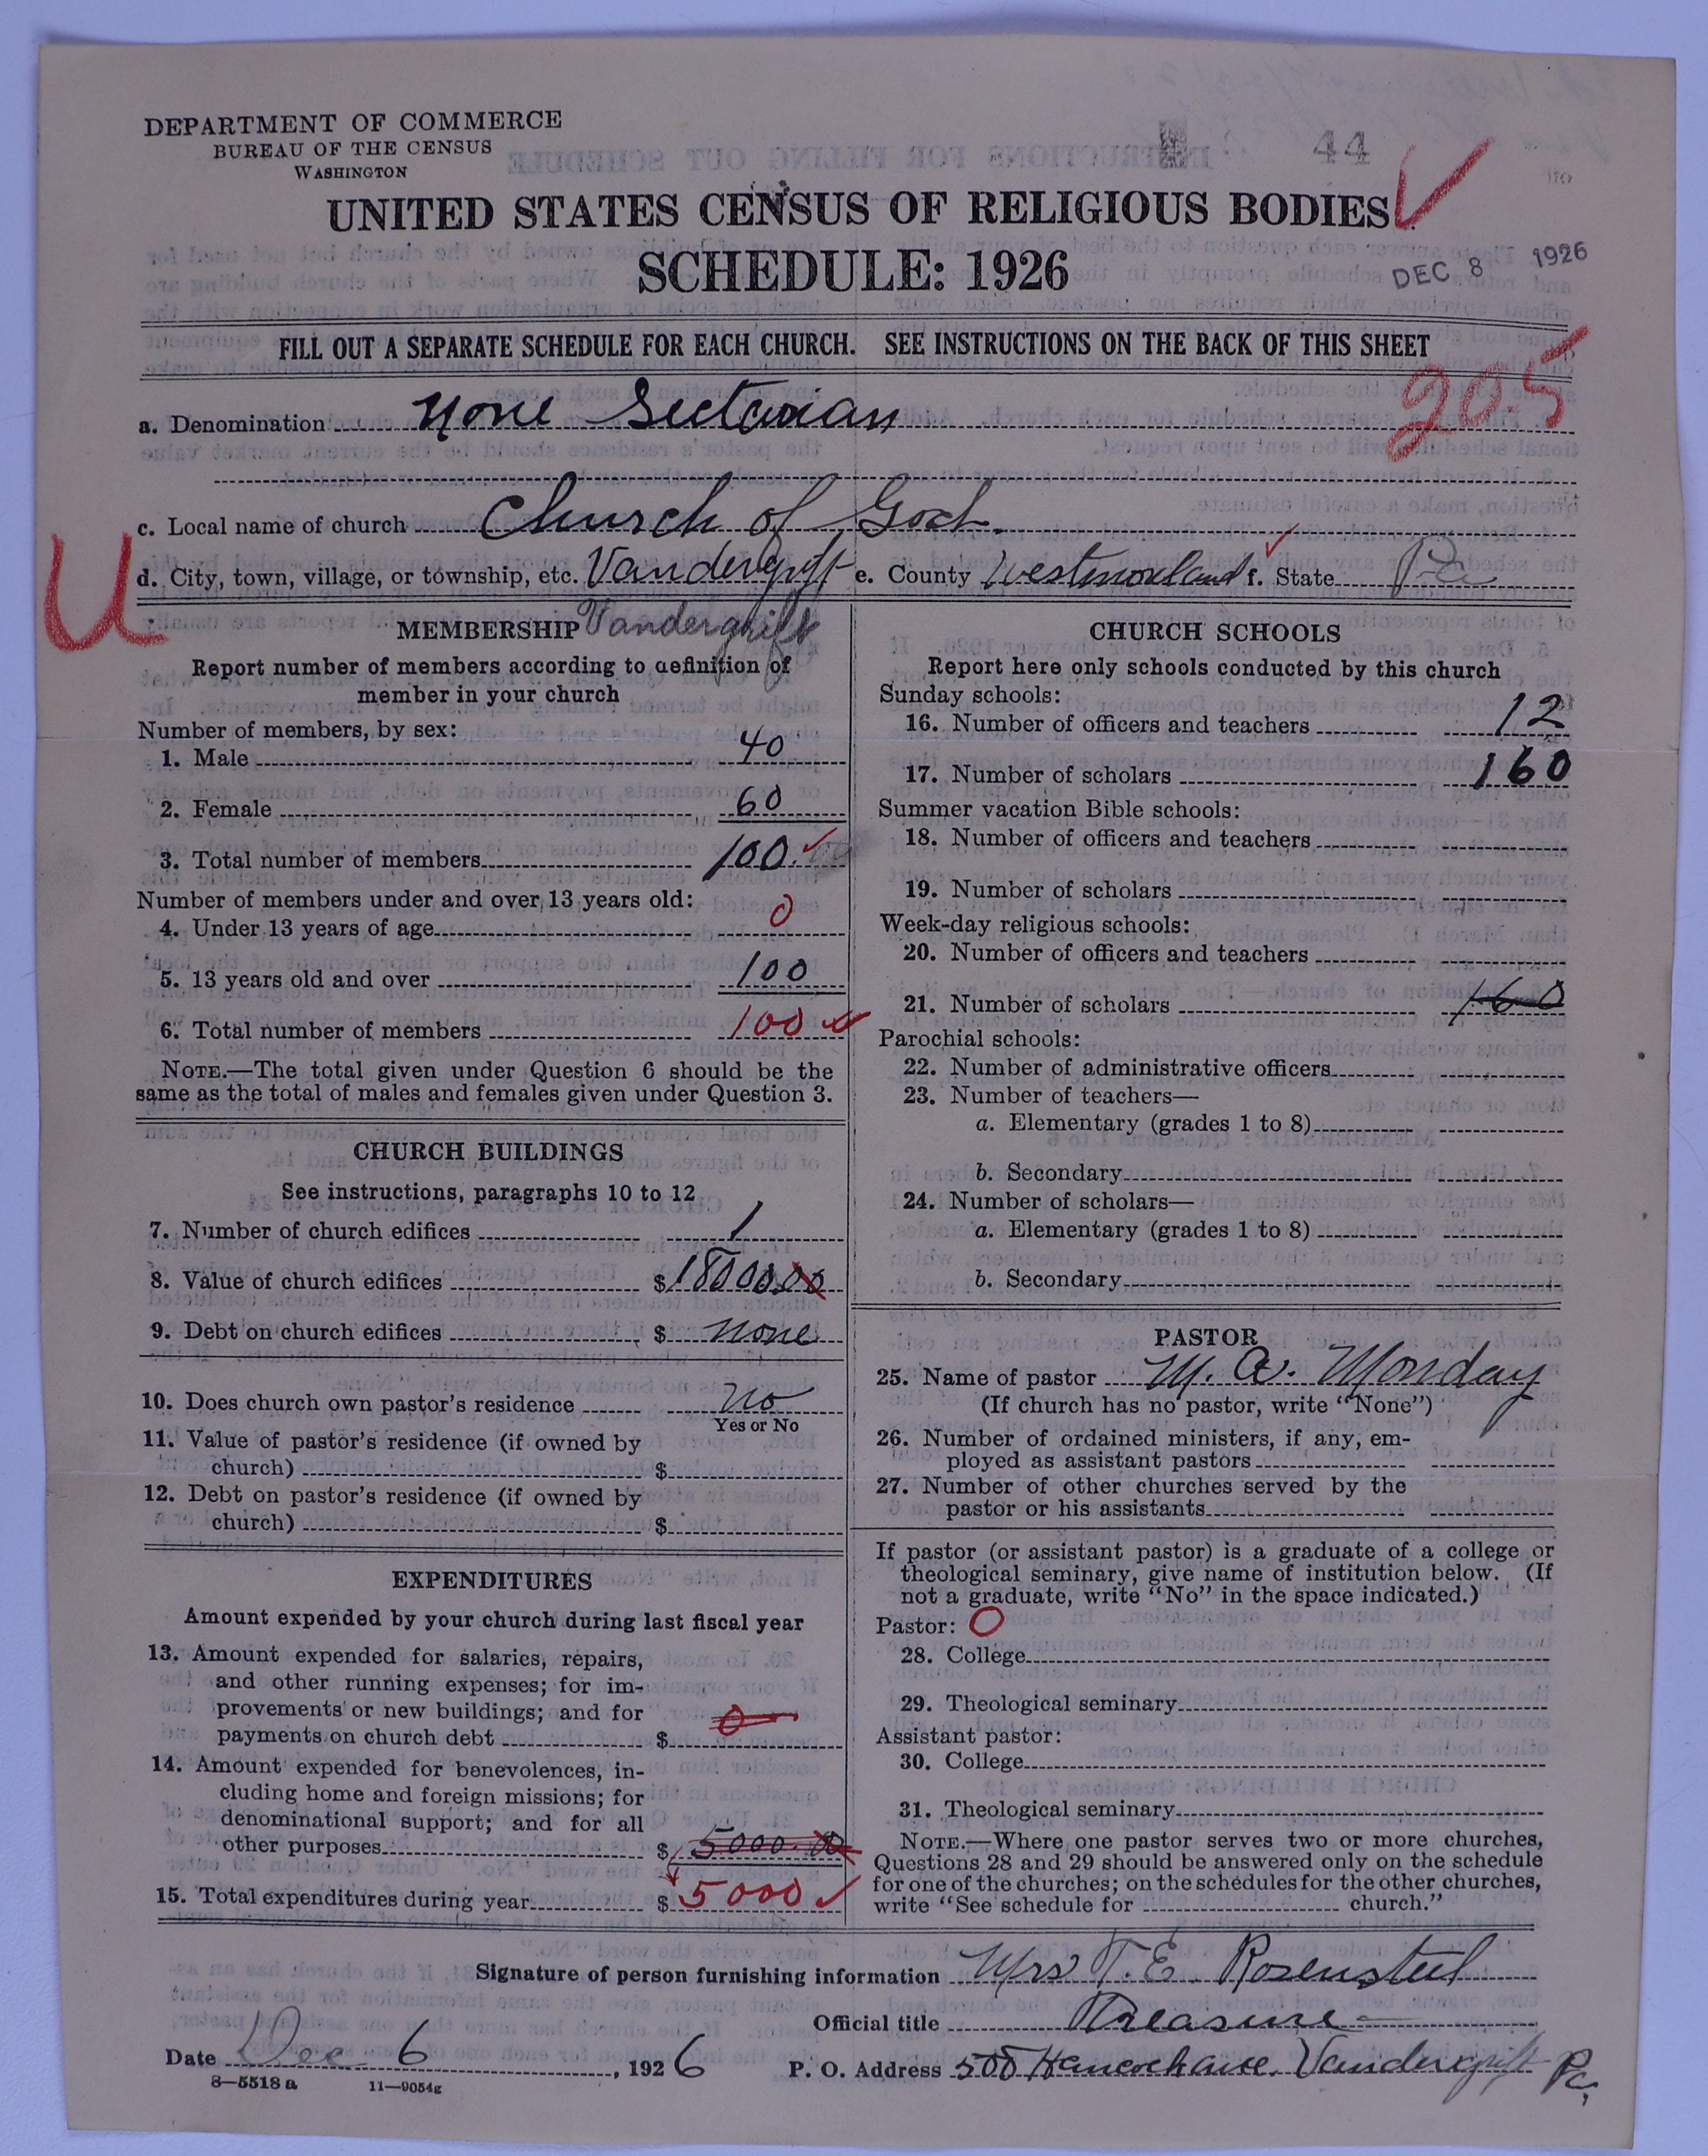 DEPARTMENT OF COMMERCE
BUREAU OF THE CENSUS
WASHINGTON
44
UNITED STATES CENSUS OF RELIGIOUS BODIES
SCHEDULE: 1926
DEC 8 1926
FILL OUT A SEPARATE SCHEDULE FOR EACH CHURCH. SEE INSTRUCTIONS ON THE BACK OF THIS SHEET
20.5
a. Denomination None Sectarian
c. Local name of church Church of God.
U
d. City, town, village, or township, etc. Vandergrift e. County Westmoreland f. State Pa
MEMBERSHIP Vandergrift
Report number of members according to definition of
member in your church
Number of members, by sex:
1. Male 40
2. Female 60
3. Total number of members 100
Number of members under and over 13 years old:
4. Under 13 years of age 0
5. 13 years old and over 100
6. Total number of members 100
NOTE.—The total given under Question 6 should be the
same as the total of males and females given under Question 3.
CHURCH BUILDINGS
See instructions, paragraphs 10 to 12
7. Number of church edifices 1
8. Value of church edifices $18000.00
9. Debt on church edifices $ none
10. Does church own pastor's residence no
Yes or No
11. Value of pastor's residence (if owned by
church) $
12. Debt on pastor's residence (if owned by
church) $
EXPENDITURES
Amount expended by your church during last fiscal year
13. Amount expended for salaries, repairs,
and other running expenses; for im-
provements or new buildings; and for
payments on church debt $ 0
14. Amount expended for benevolences, in-
cluding home and foreign missions; for
denominational support; and for all
other purposes $ 5000.00
15. Total expenditures during year $ 5000
CHURCH SCHOOLS
Report here only schools conducted by this church
Sunday schools:
16. Number of officers and teachers 12
17. Number of scholars 160
Summer vacation Bible schools:
18. Number of officers and teachers
19. Number of scholars
Week-day religious schools:
20. Number of officers and teachers
21. Number of scholars 160
Parochial schools:
22. Number of administrative officers
23. Number of teachers—
a. Elementary (grades 1 to 8)
b. Secondary
24. Number of scholars—
a. Elementary (grades 1 to 8)
b. Secondary
PASTOR
25. Name of pastor M. A. Monday
(If church has no pastor, write "None")
26. Number of ordained ministers, if any, em-
ployed as assistant pastors
27. Number of other churches served by the
pastor or his assistants
If pastor (or assistant pastor) is a graduate of a college or
theological seminary, give name of institution below. (If
not a graduate, write "No" in the space indicated.)
Pastor: O
28. College
29. Theological seminary
Assistant pastor:
30. College
31. Theological seminary
NOTE.—Where one pastor serves two or more churches,
Questions 28 and 29 should be answered only on the schedule
for one of the churches; on the schedules for the other churches,
write "See schedule for church."
Signature of person furnishing information Mrs T. E. Rosensteel
Official title Treasure
Date Dec 6, 1926 P. O. Address 500 Vandergrift Pa,
8—5518 a 11—9054g